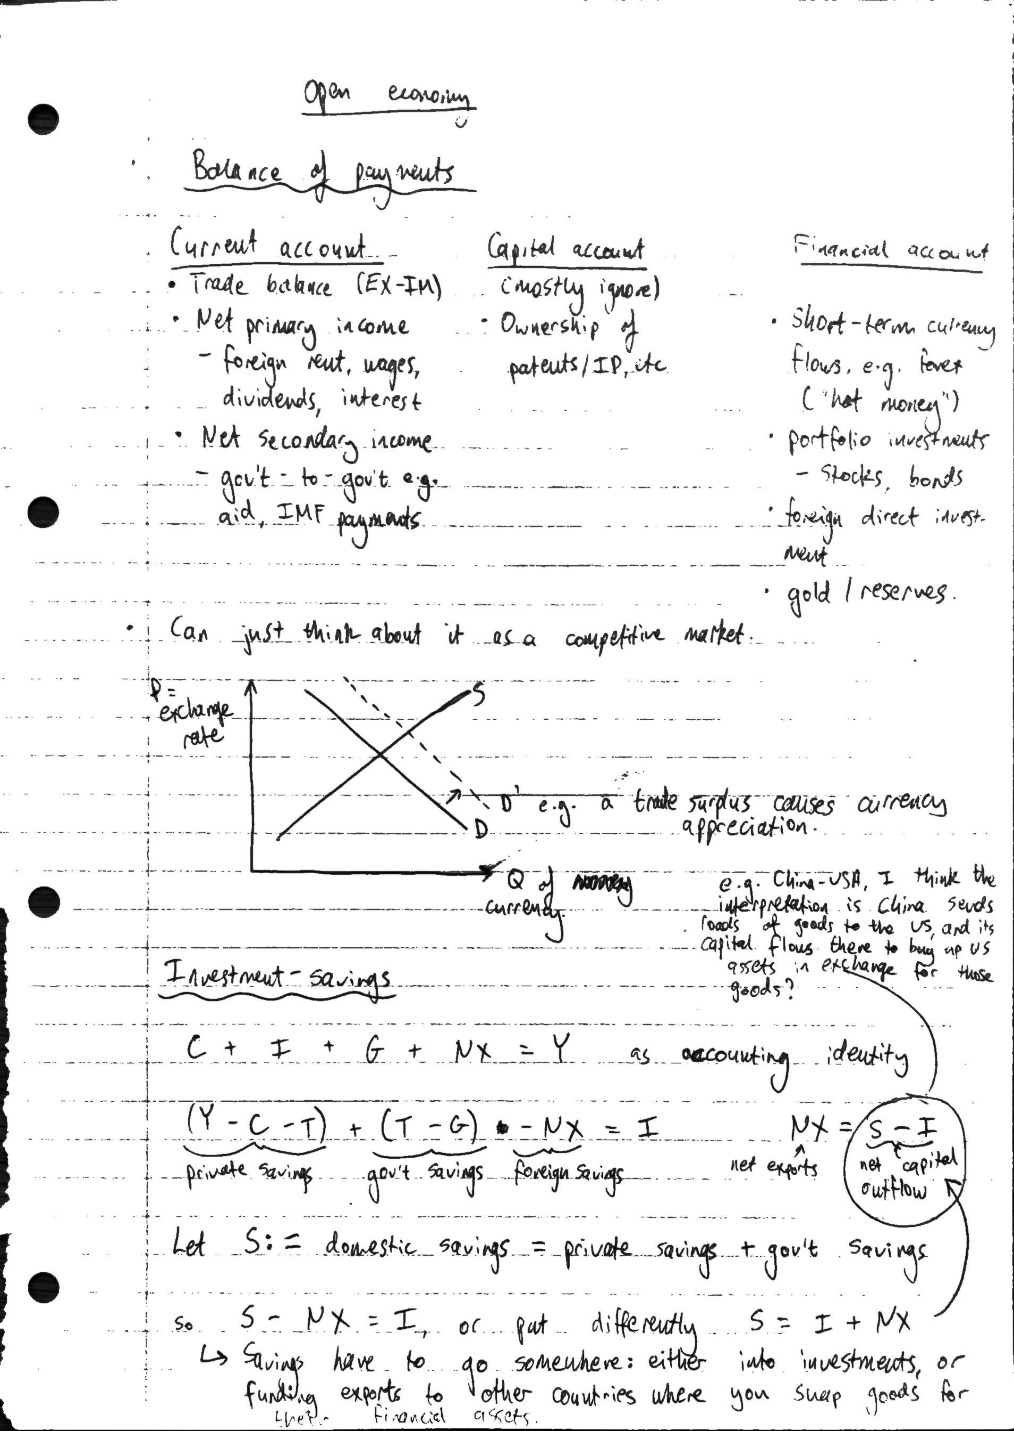 Open economy
Balance of payments
Current account
• Trade balance (EX-IM)
• Net primary income
- foreign rent, wages,
dividends, interest
• Net secondary income
- gov't - to - gov't e.g.
aid, IMF payments
Capital account
(mostly ignore)
• Ownership of
patents/IP, etc
Financial account
• Short-term currency
flows, e.g. forex
("hot money")
• portfolio investments
- stocks, bonds
• foreign direct invest-
ment
• gold / reserves.
• Can just think about it as a competitive market.
P =
exchange
rate
S
D' e.g. a trade surplus causes currency
appreciation.
D
Q of
currency
e.g. China-USA, I think the
interpretation is China sends
loads of goods to the US, and its
capital flows there to buy up US
assets in exchange for those
goods?
Investment-savings
C + I + G + NX = Y as accounting identity
(Y - C - T) + (T - G) - NX = I
private savings gov't savings foreign savings
NX = S - I
net exports net capital
outflow
Let S := domestic savings = private savings + gov't savings
so S - NX = I, or put differently S = I + NX
↳ Savings have to go somewhere: either into investments, or
funding exports to other countries where you swap goods for
their financial assets.